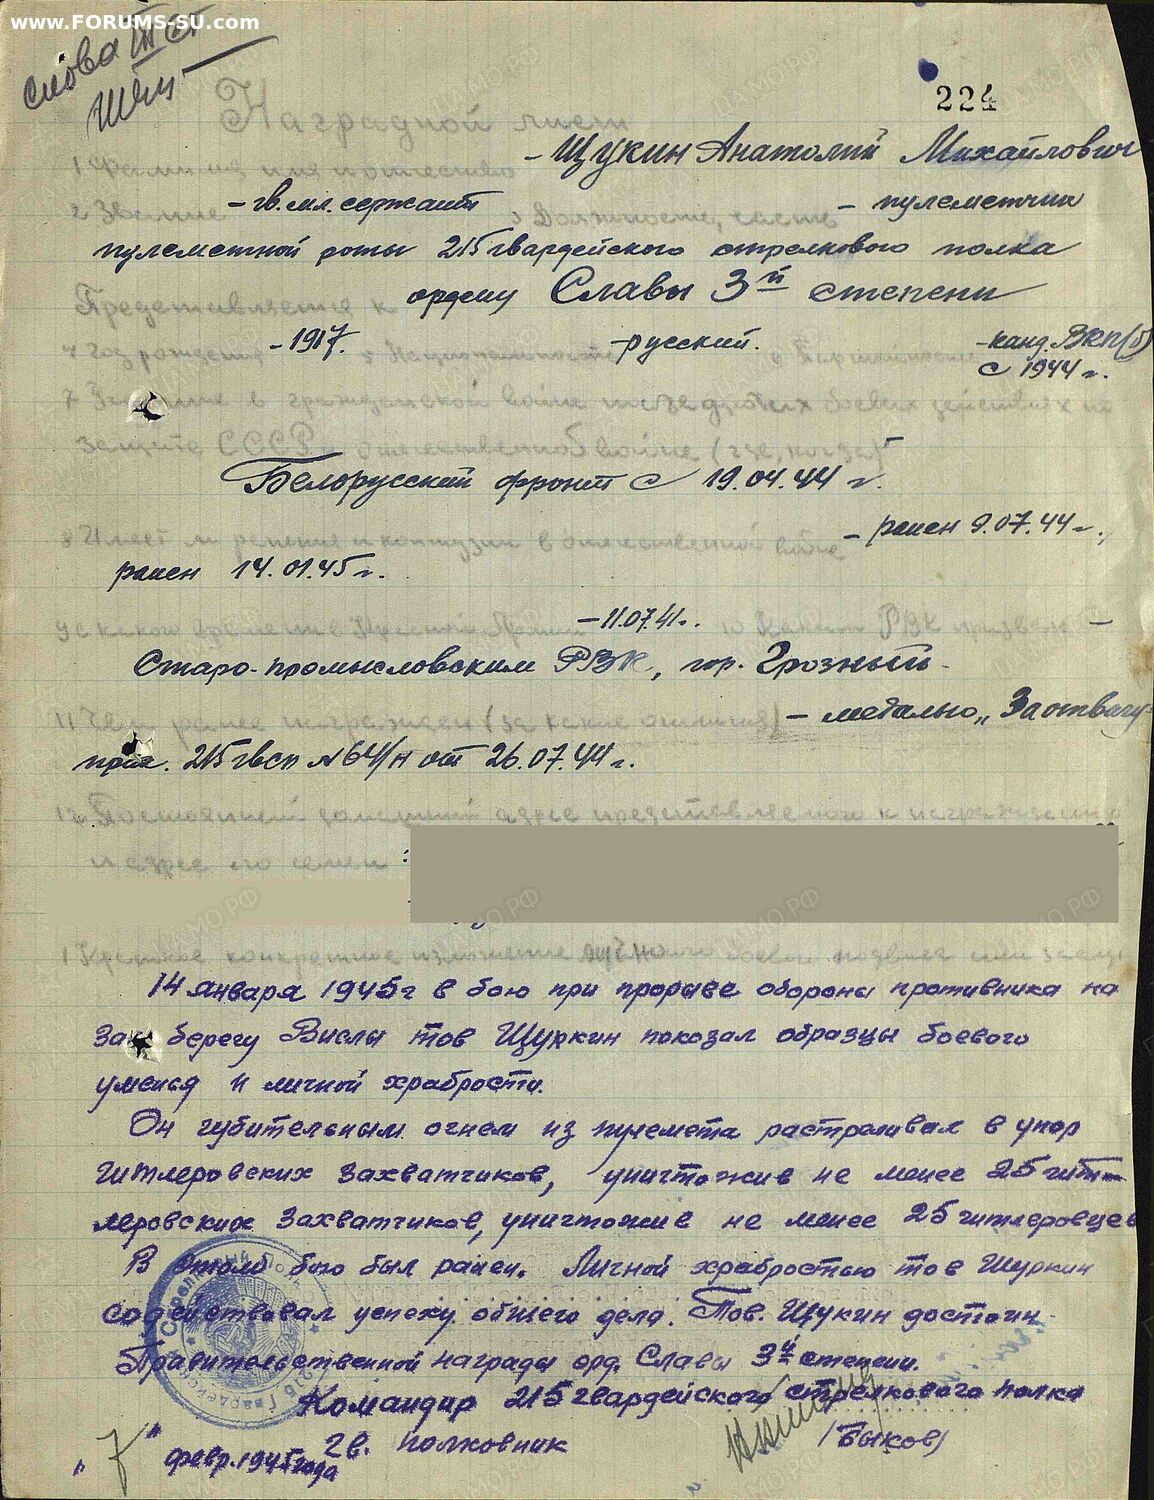 www.FORUMS-SU.com
слова III ст
224
Наградной лист
- Щукин Анатолий Михайлович
1 Фамилия имя и отчество
2 Звание - гв. мл. сержант 3 Должность, часть - пулеметчик
пулеметной роты 215 гвардейского стрелкового полка
Представляется к ордену Славы 3й степени
4 Год рождения - 1917. 5 Национальность - русский. 6 Партийность - канд. ВКП(б)
с 1944 г.
7 Участие в гражданской войне последующих боевых действиях по
защите СССР и отечественной войне (где, когда)
Белорусский фронт с 19.04.44 г.
8 Имеет ли ранения и контузии в отечественной войне - ранен 9.07.44 г.,
ранен 14.01.45 г.
9 С какого времени в Красной Армии - 11.07.41 г. 10 Каким РВК призван -
Старо-промысловским РВК, гор. Грозный.
11 Чем ранее награжден (за какие отличия) - медалью „За отвагу"
прик. 215 гвсп №64/н от 26.07.44 г.
12 Постоянный домашний адрес представляемого к награждению
и адрес его семьи :
1 Краткое конкретное изложение личного боевого подвига или заслуг
14 января 1945 г в бою при прорыве обороны противника на
зап берегу Вислы тов Щуркин показал образцы боевого
умения и личной храбрости.
Он губительным огнем из пулемета растреливал в упор
гитлеровских захватчиков, уничтожив не менее 25 гит-
леровских захватчиков, уничтожив не менее 25 гитлеровцев
В этом бою был ранен. Личной храбростью тов Щуркин
содействовал успеху общего дела. Тов. Щукин достоин
Правительственной награды орд. Славы 3й степени.
Командир 215 гвардейского стрелкового полка
гв. полковник /Быков/
„7" февр. 1945 года